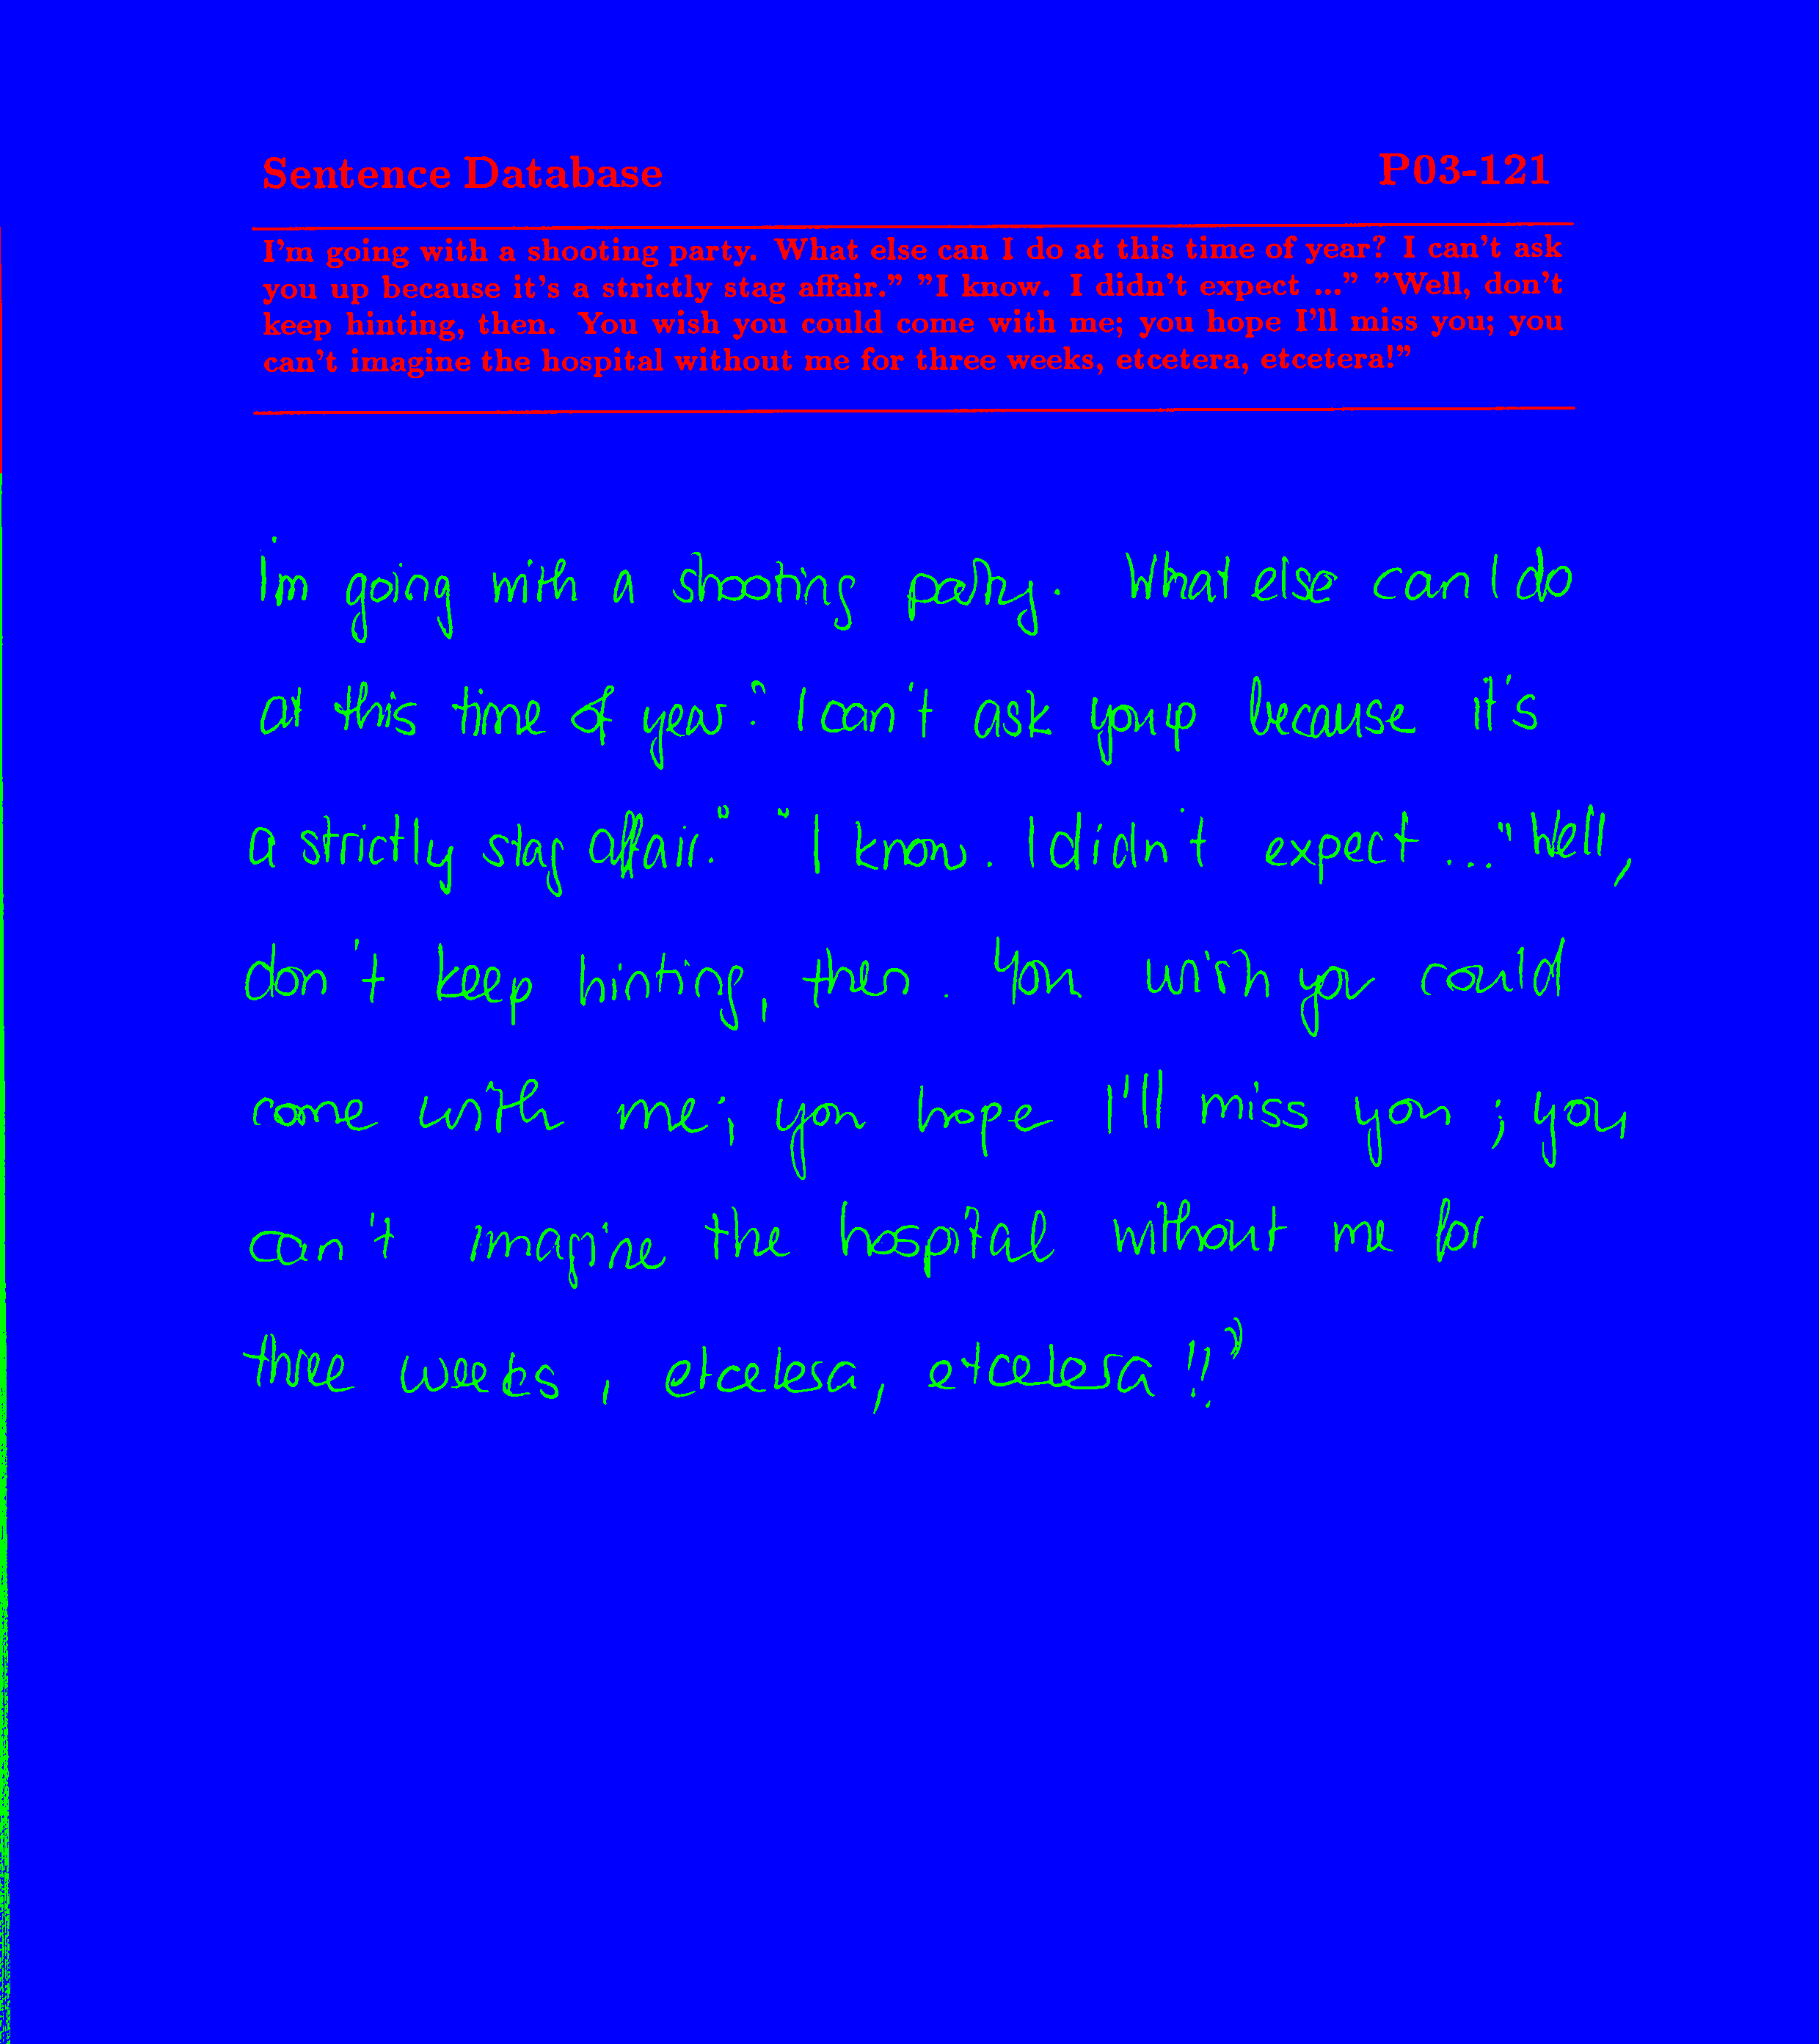 Sentence Database P03-121
I'm going with a shooting party. What else can I do at this time of year? I can't ask
you up because it's a strictly stag affair.” ”I know. I didn't expect ...” ”Well, don't
keep hinting, then. You wish you could come with me; you hope I'll miss you; you
can't imagine the hospital without me for three weeks, etcetera, etcetera!”
I'm going with a shooting party. What else can I do
at this time of year? I can't ask you up because it's
a strictly stag affair." "I know. I didn't expect ... "Well,
don't keep hinting, then. You wish you could
come with me; you hope I'll miss you; you
can't imagine the hospital without me for
three weeks, etcetera, etcetera!!"